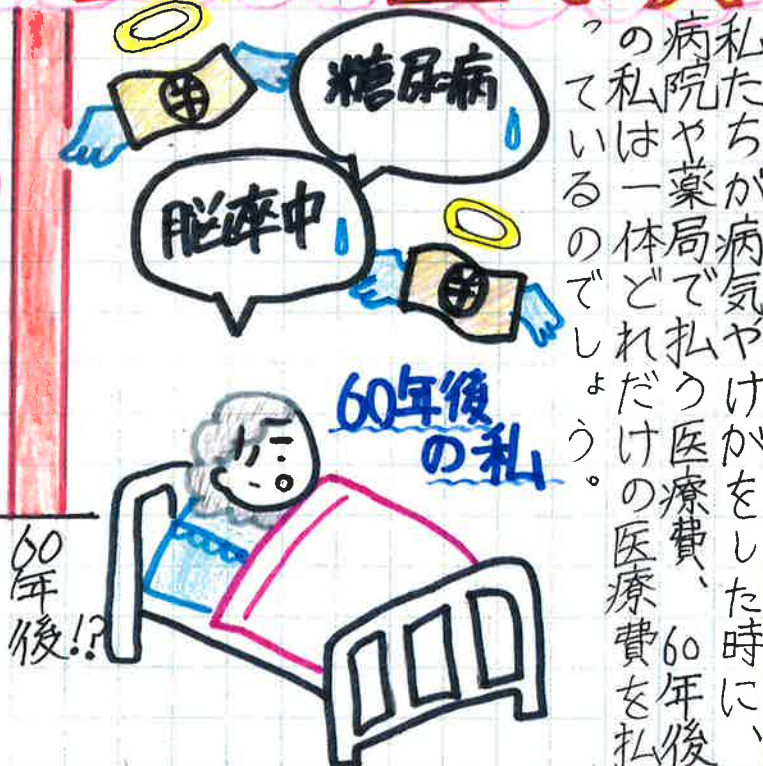 私たちが病気やけがをした時に、
病院や薬局で払う医療費、60年後
の私は一体どれだけの医療費を払
っているのでしょう。
糖尿病
脳卒中
60年後
の私
60
年
後!?